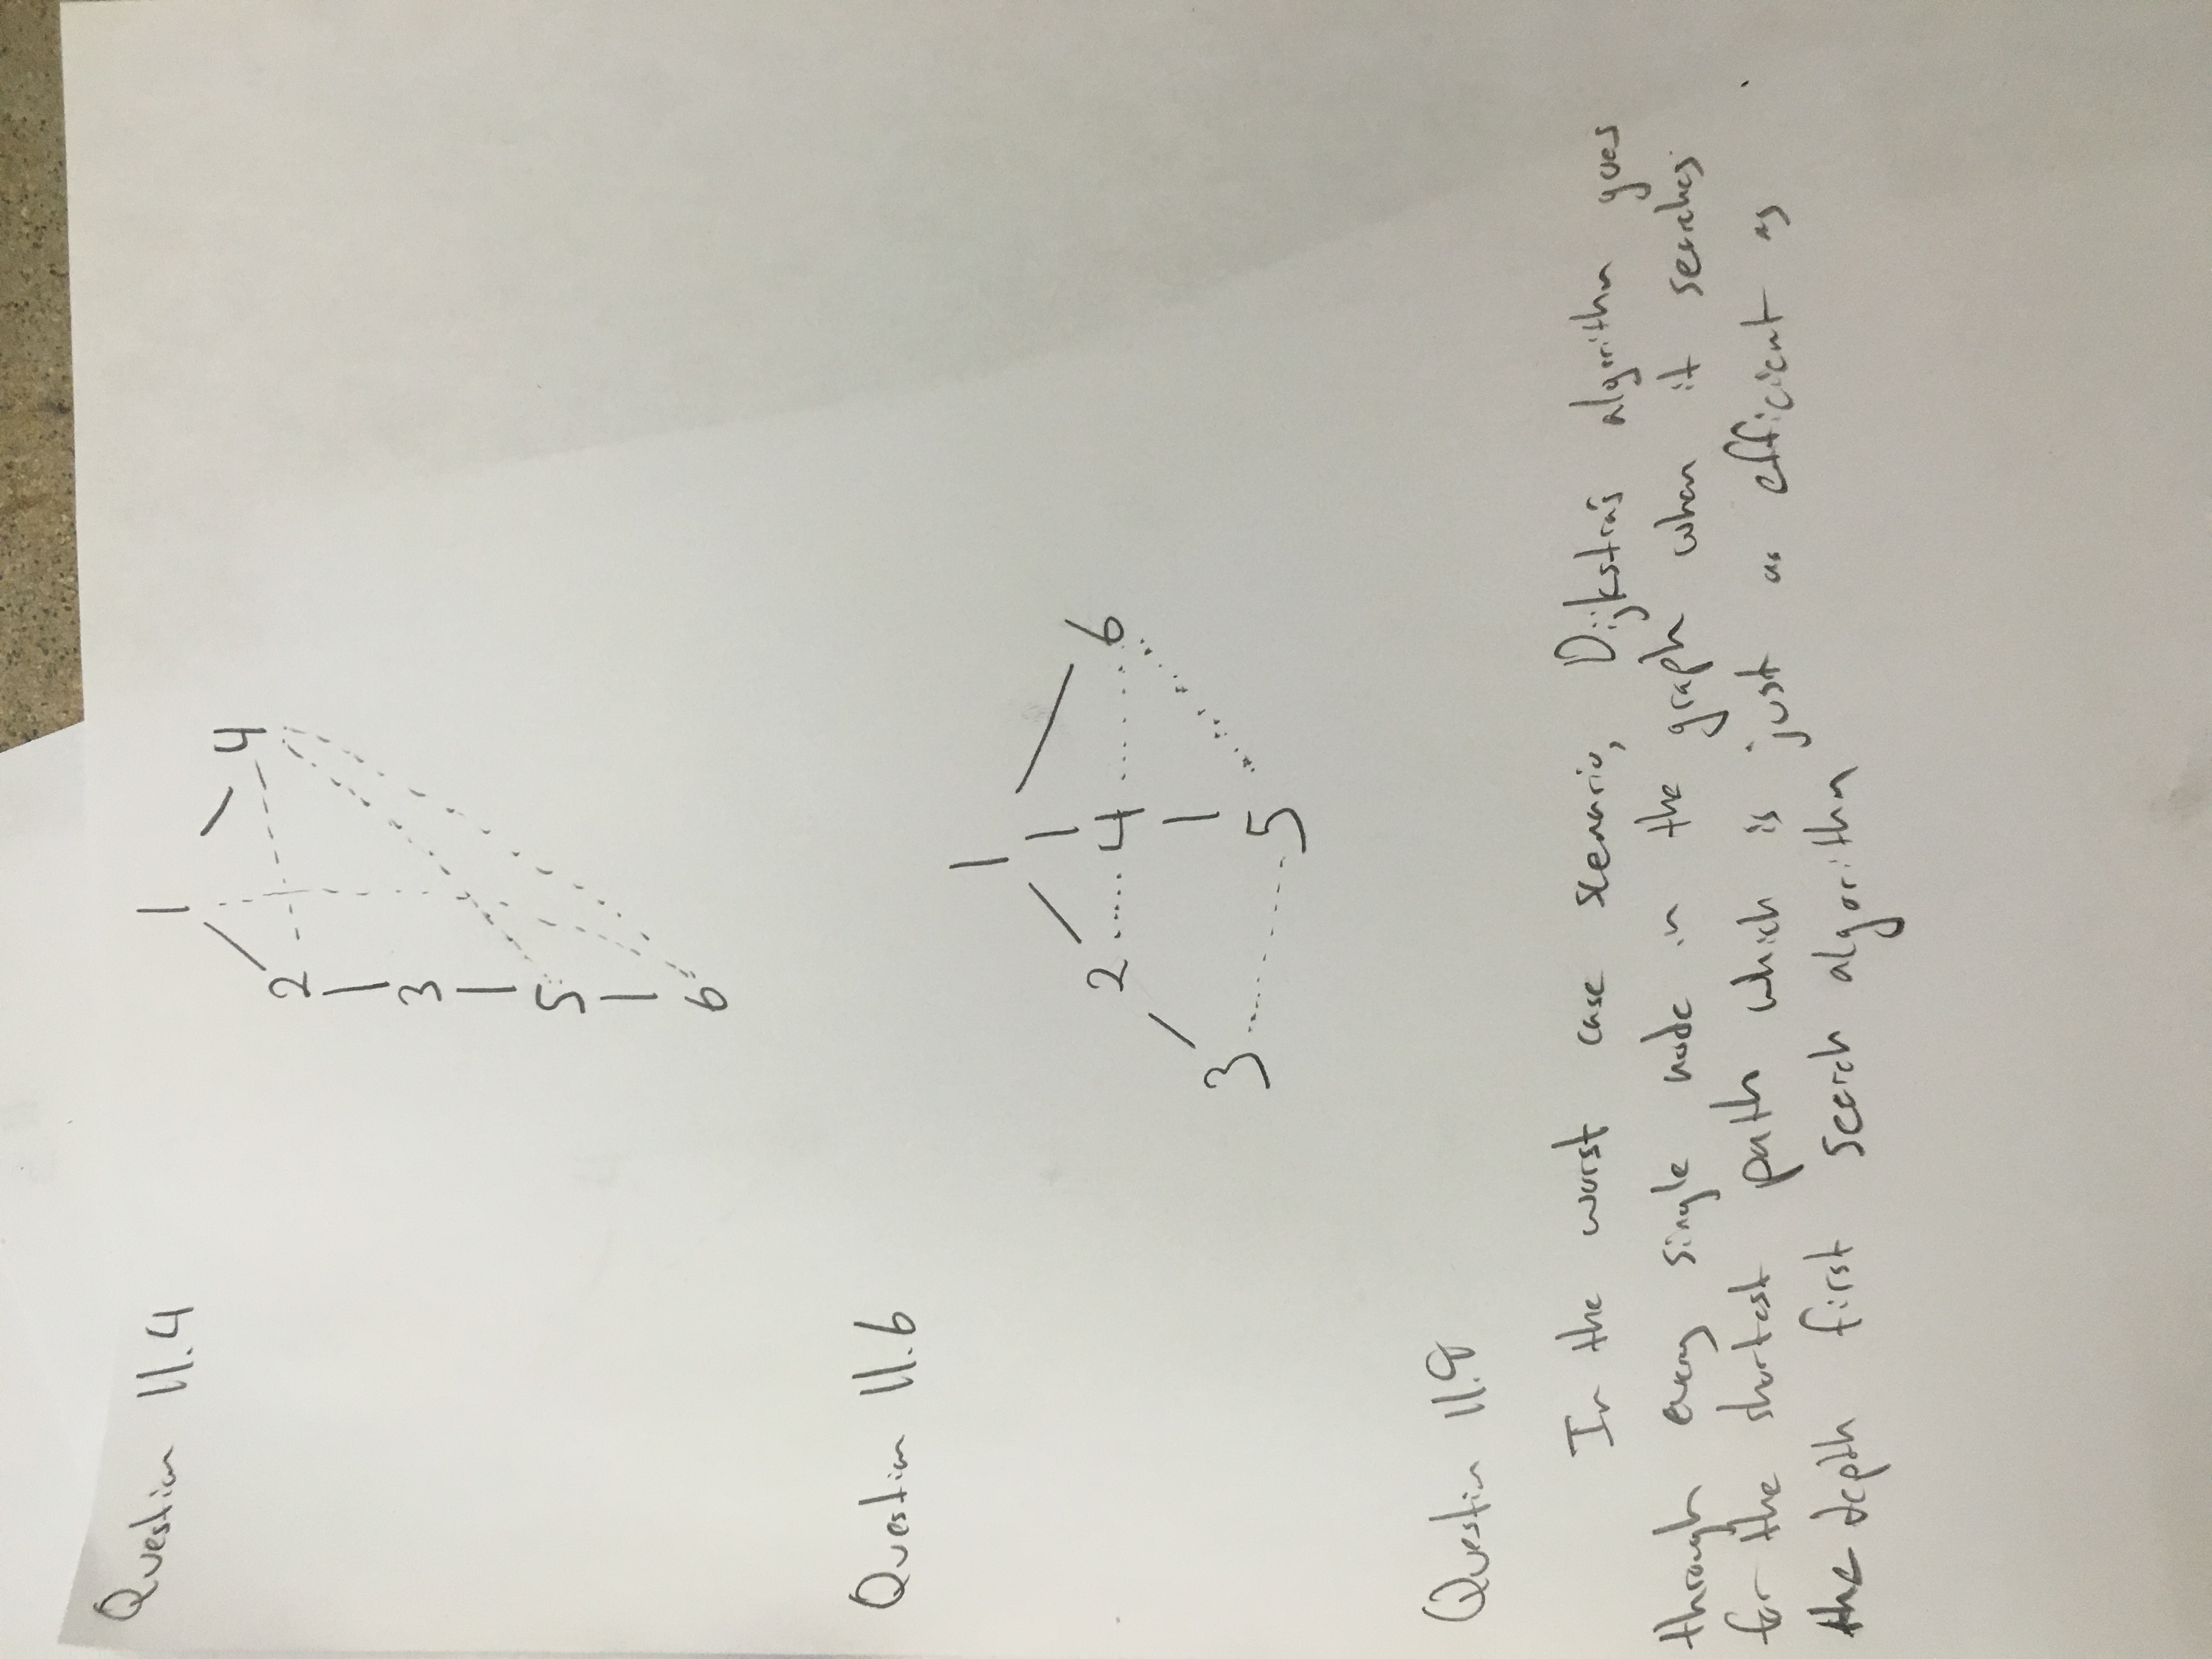 Question 11.4
1
4
2
3
5
6
Question 11.6
1
2 4 6
3 5
Question 11.8
In the worst case scenario, Dijkstra's algorithm goes
through every single node in the graph when it searches
for the shortest path which is just as efficient as
the depth first search algorithm